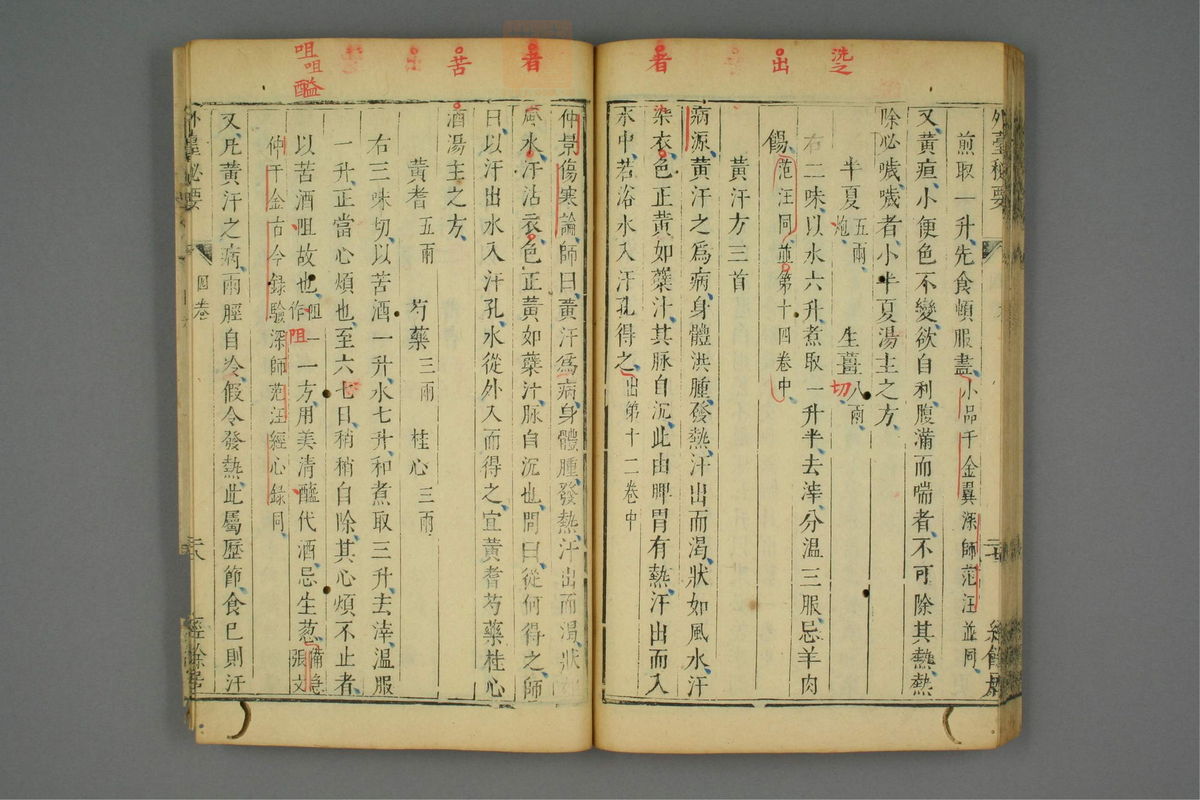 洗之
出
者
外臺秘要
煎取一升先食頓服盡小品千金翼深師范汪並同
又黃疸小便色不變欲自利腹滿而喘者不可除其熱熱
除必噦噦者小半夏湯主之方
半夏五兩炮 生薑八兩切
右二味以水六升煮取一升半去滓分溫三服忌羊肉
餳范汪同並第十四卷中
黃汗方三首
病源黃汗之爲病身體洪腫發熱汗出而渴狀如風水汗
染衣色正黃如蘗汁其脉自沉此由脾胃有熱汗出而入
水中若浴水入汗孔得之出第十二卷中
者
苦
出
咀咀
醯
仲景傷寒論師曰黃汗爲病身體腫發熱汗出而渴狀如
風水汗沾衣色正黃如蘗汁脉自沉也問曰從何得之師
曰以汗出水入汗孔水從外入而得之宜黃耆芍藥桂心
酒湯主之方
黃耆五兩 芍藥三兩 桂心三兩
右三味切以苦酒一升水七升和煮取三升去滓溫服
一升正當心煩也至六七日稍稍自除其心煩不止者
以苦酒咀故也咀一作咀一方用美清醯代酒忌生葱備急張文
仲千金古今錄驗深師范汪經心錄同
又凡黃汗之病兩脛自冷假令發熱此屬歷節食已則汗
外臺秘要
四卷
經餘居